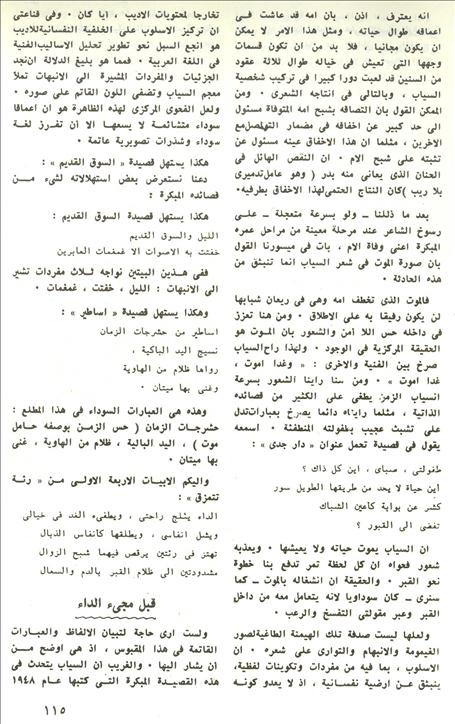 انه يعترف ، اذن ، بان امه قد عاشت فى
اعماقه طوال حياته ، ومثل هذا الامر لا يمكن
ان يكون مجانيا ، فلا بد من ان تكون قسمات
وجهها التى تعيش فى خياله طوال ثلاثة عقود
من السنين قد لعبت دورا كبيرا فى تركيب شخصية
السياب ، وبالتالى فى انتاجه الشعرى ٠ ومن
الممكن القول بان التصاقه بشبح امه المتوفاة مسئول
الى حد كبير عن اخفاقه فى مضمار التواصل مع
الاخرين ، مثلما ان هذا الاخفاق عينه مسئول عن
تثبته على شبح الام ٠ ان النقص الهائل فى
الحنان الذى يعانى منه بدر ( وهو عامل تدميرى
بلا ريب ) كان النتاج الحتمى لهذا الاخفاق بطرفيه٠
بعد ما ذللنا ــ ولو بسرعة متعجلة ــ على
رسوخ الشاعر عند مرحلة معينة من مراحل عمره
المبكرة اعنى وفاة الام ، بات فى ميسورنا القول
بان صورة الموت فى شعر السياب انما تنبثق من
هذه الحادثة ٠
فالموت الذى تخطف امه وهى فى ريعان شبابها
لن يكون رفيقا به على الاطلاق ٠ ومن هنا تعزز
فى داخله حس اللا امن والشعور بان الموت هو
الحقيقة المركزية فى الوجود ٠ ولهذا راح السياب
صرخ بين الفنية والاخرى : « وغدا اموت ،
غدا اموت » ٠ ومن هنا راينا الشعور بسرعة
انسياب الزمن يطغى على الكثير من قصائده
الذاتية ، مثلما رايناه دائما يصرخ بعبارات تدل
على تشبث عجيب بطفولته المنطفئة ٠ اسمعه
يقول فى قصيدة تحمل عنوان « دار جدى » :
طفولتى ، صباى ، اين كل ذاك ؟
اين حياة لا يحد من طريقها الطويل سور
كشر عن بوابة كأعين الشباك
تفضى الى القبور ؟
ان السياب يموت حياته ولا يعيشها ٠ ويعذبه
شعور فحواه ان كل لحظة تمر تدفع بنا خطوة
نحو القبر ٠ والحقيقة ان انشغاله بالموت ــ كما
سنرى ــ كان سوداويا لانه يتعامل معه من داخل
القبر وعبر مقولتى التفسخ والرعب ٠
ولعلها ليست صدفة تلك الهيمنة الطاغية لصور
الغيمومة والانبهام والتوارى على شعره ٠ ان
الاسلوب ، بما فيه من مفردات وتكوينات لفظية،
ينبثق عن ارضية نفسانية ، اذ لا يعدو كونه
تخارجا لمحتويات الاديب ، ايا كان ٠ وفى قناعتى
ان تركيز الاسلوب على الخلفية النفسانية للاديب
هو انجع السبل نحو تطوير تحليل الاساليب الفنية
فى اللغة العربية ٠ فمما هو بليغ الدلالة ان نجد
الجزئيات والمفردات المشيرة الى الانبهات تملأ
معجم السياب وتضفى اللون القاتم على صوره ٠
ولعل الفحوى المركزى لهذه الظاهرة هو ان اعماقا
سوداء متشائمة لا يسعها الا ان تفرز لغة
سوداء وشذرات تصويرية عاتمة ٠
هكذا يستهل قصيدة « السوق القديم » :
دعنا نستعرض بعض استهلالاته لشىء مـــن
قصائده المبكرة :
هكذا يستهل قصيدة السوق القديم :
الليل والسوق القديم
خفتت به الاصوات الا غمغمات العابرين
ففى هـذين البيتين نواجه ثـلاث مفردات تشير
الى الانبهات : الليل ، خفتت ، غمغمات ٠
وهكذا يستهل قصيدة « اساطير » :
اساطير من حشرجات الزمان
نسيج اليد الباكية ،
رواها ظلام من الهاوية
وغنى بها ميتان ٠
وهذه هى العبارات السوداء فى هذا المطلع :
حشرجات الزمان ( حس الزمـن بوصفه حامـل
موت ) ، اليد البالية ، ظلام من الهاوية ، غنى
بها ميتان ٠
واليكم الابيات الاربعة الاولى مـن « رئـة
تتمزق » :
الداء يثلج راحتى ، ويطفىء الغد فى خيالى
ويشل انفاسى ، ويطلقها كأنفاس الذبال
تهتز فى رئتين يرقص فيهما شبح الزوال
مشدودتين الى ظلام القبر بالدم والسعال
قبل مجىء الداء
ولست ارى حاجة لتبيان الالفاظ والعبـارات
القاتمة فى هذا المقبوس ، اذ هى اوضح مــن
ان يشار اليها ٠ والغريب ان السياب يتحدث فى
هذه القصيدة المبكرة التـى كتبها عـام ١٩٤٨
١١٥